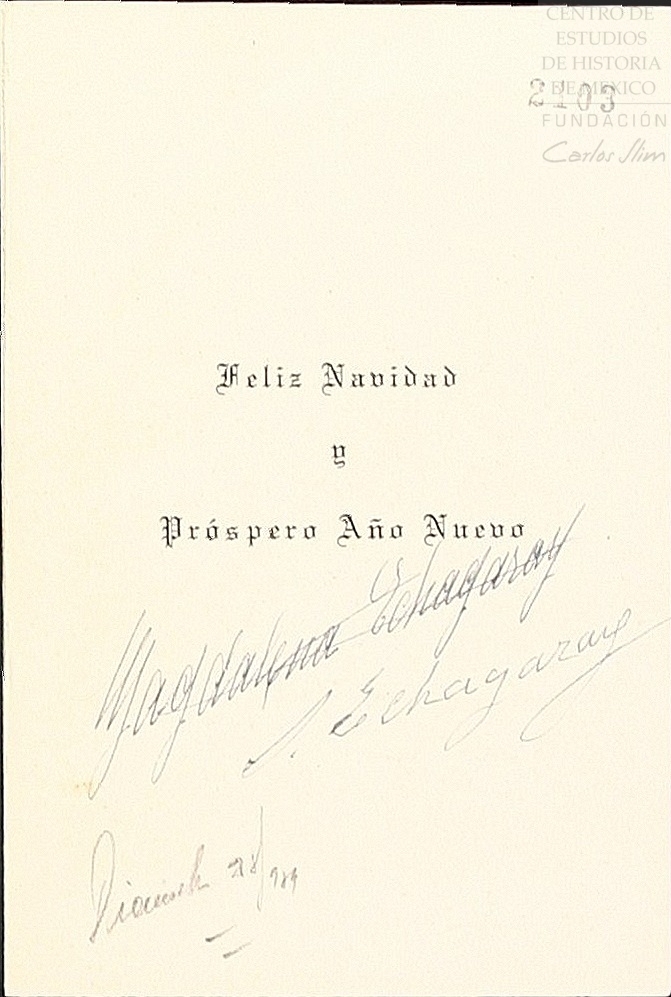 CENTRO DE
ESTUDIOS
DE HISTORIA
DE MEXICO
2103
FUNDACIÓN
Carlos Slim
Feliz Navidad
y
Próspero Año Nuevo
Magdalena Echagaray
Echagaray